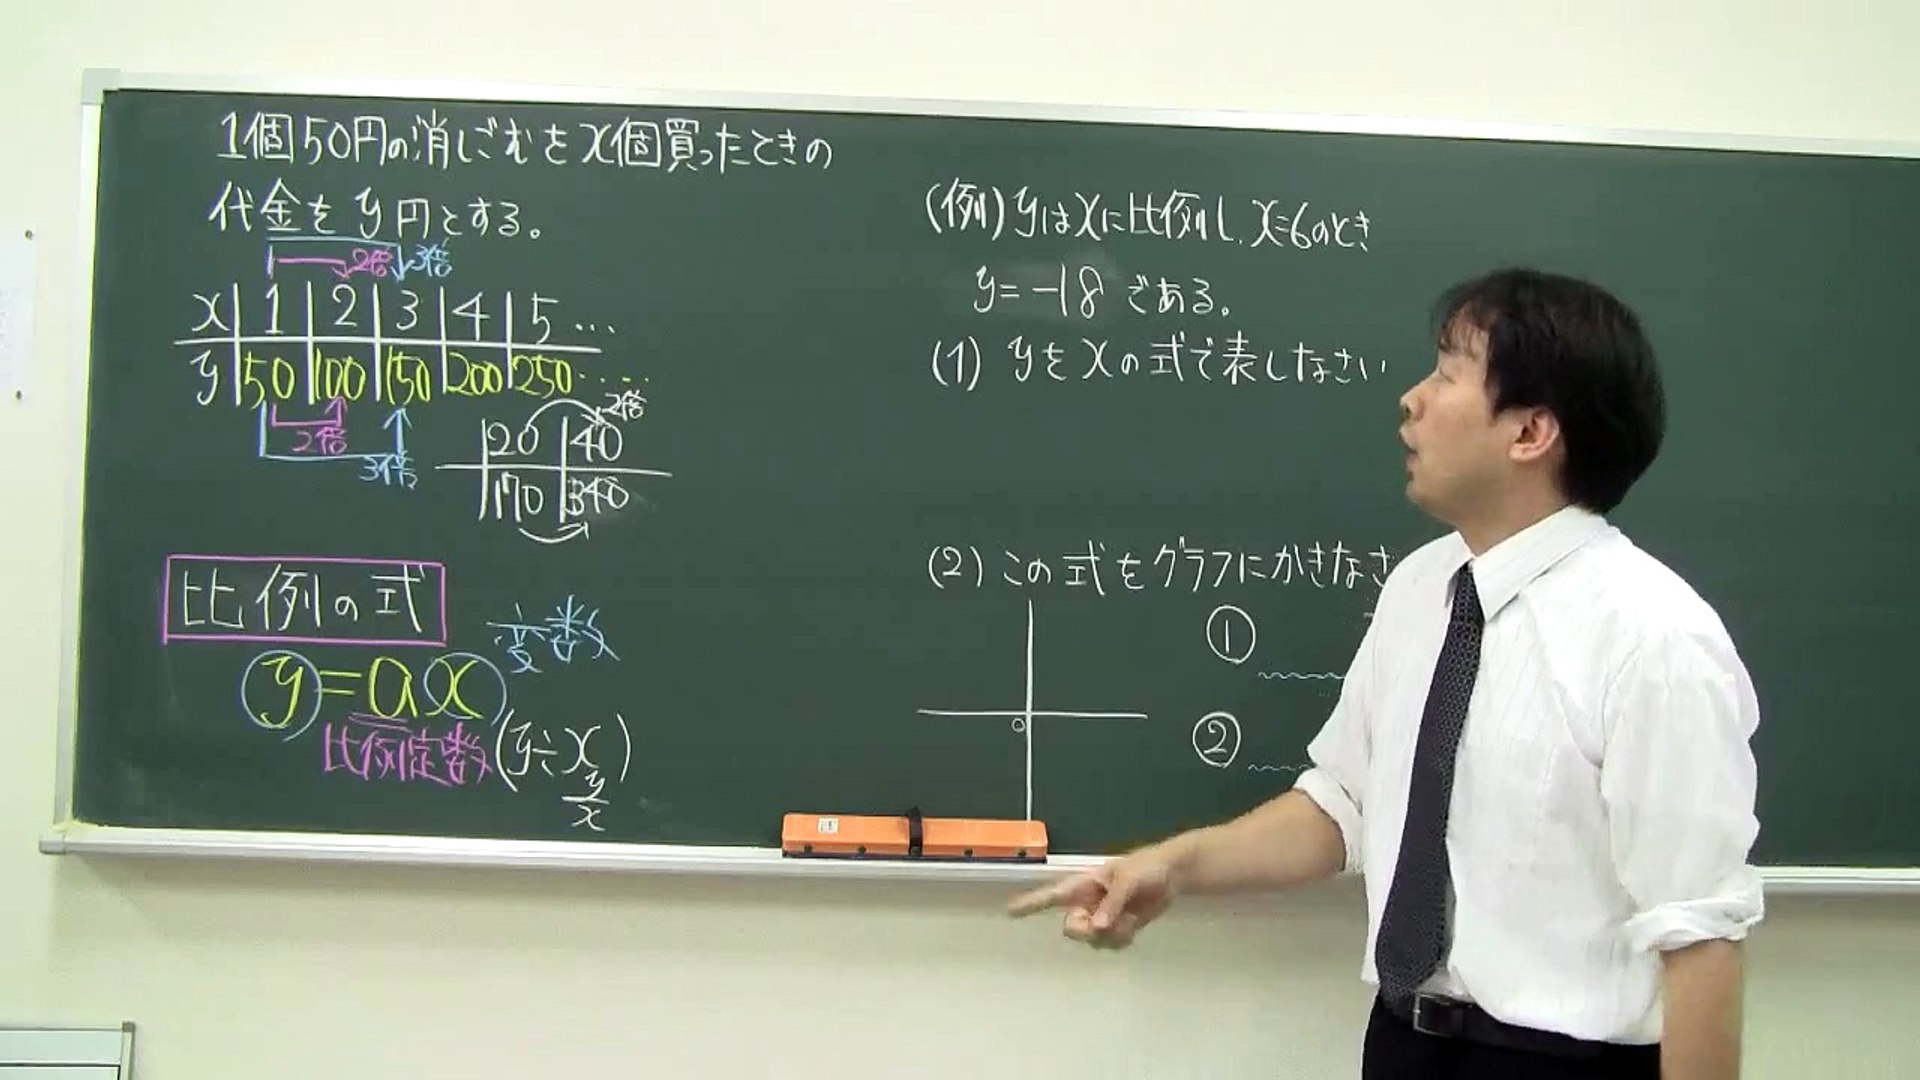 1個50円の消しごむをx個買ったときの
代金をy円とする。
2倍 3倍
x 1 2 3 4 5 …
y 50 100 150 200 250 ‥‥
2倍
3倍
2倍
20 40
170 340
比例の式
変数
y=ax
比例定数 (y÷x)
y/x
(例) yはxに比例し、x=6のとき
y=-18である。
(1) yをxの式で表しなさい
(2) この式をグラフにかきなさ
①
②
O